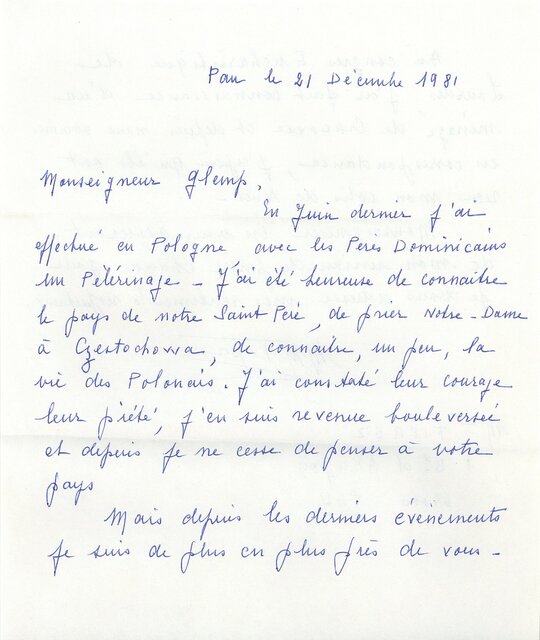 Pau le 21 Décembre 1981
Monseigneur Glemp,
En Juin dernier j'ai
effectué en Pologne, avec les Pères Dominicains
un Pélérinage - J'ai été heureuse de connaitre
le pays de notre Saint Père, de prier Notre-Dame
à Czestochowa, de connaitre, un peu, la
vie des Polonais. J'ai constaté leur courage
leur piété, j'en suis revenue bouleversée
et depuis je ne cesse de penser à votre
pays
Mais depuis les derniers évènements
je suis de plus en plus près de vous -